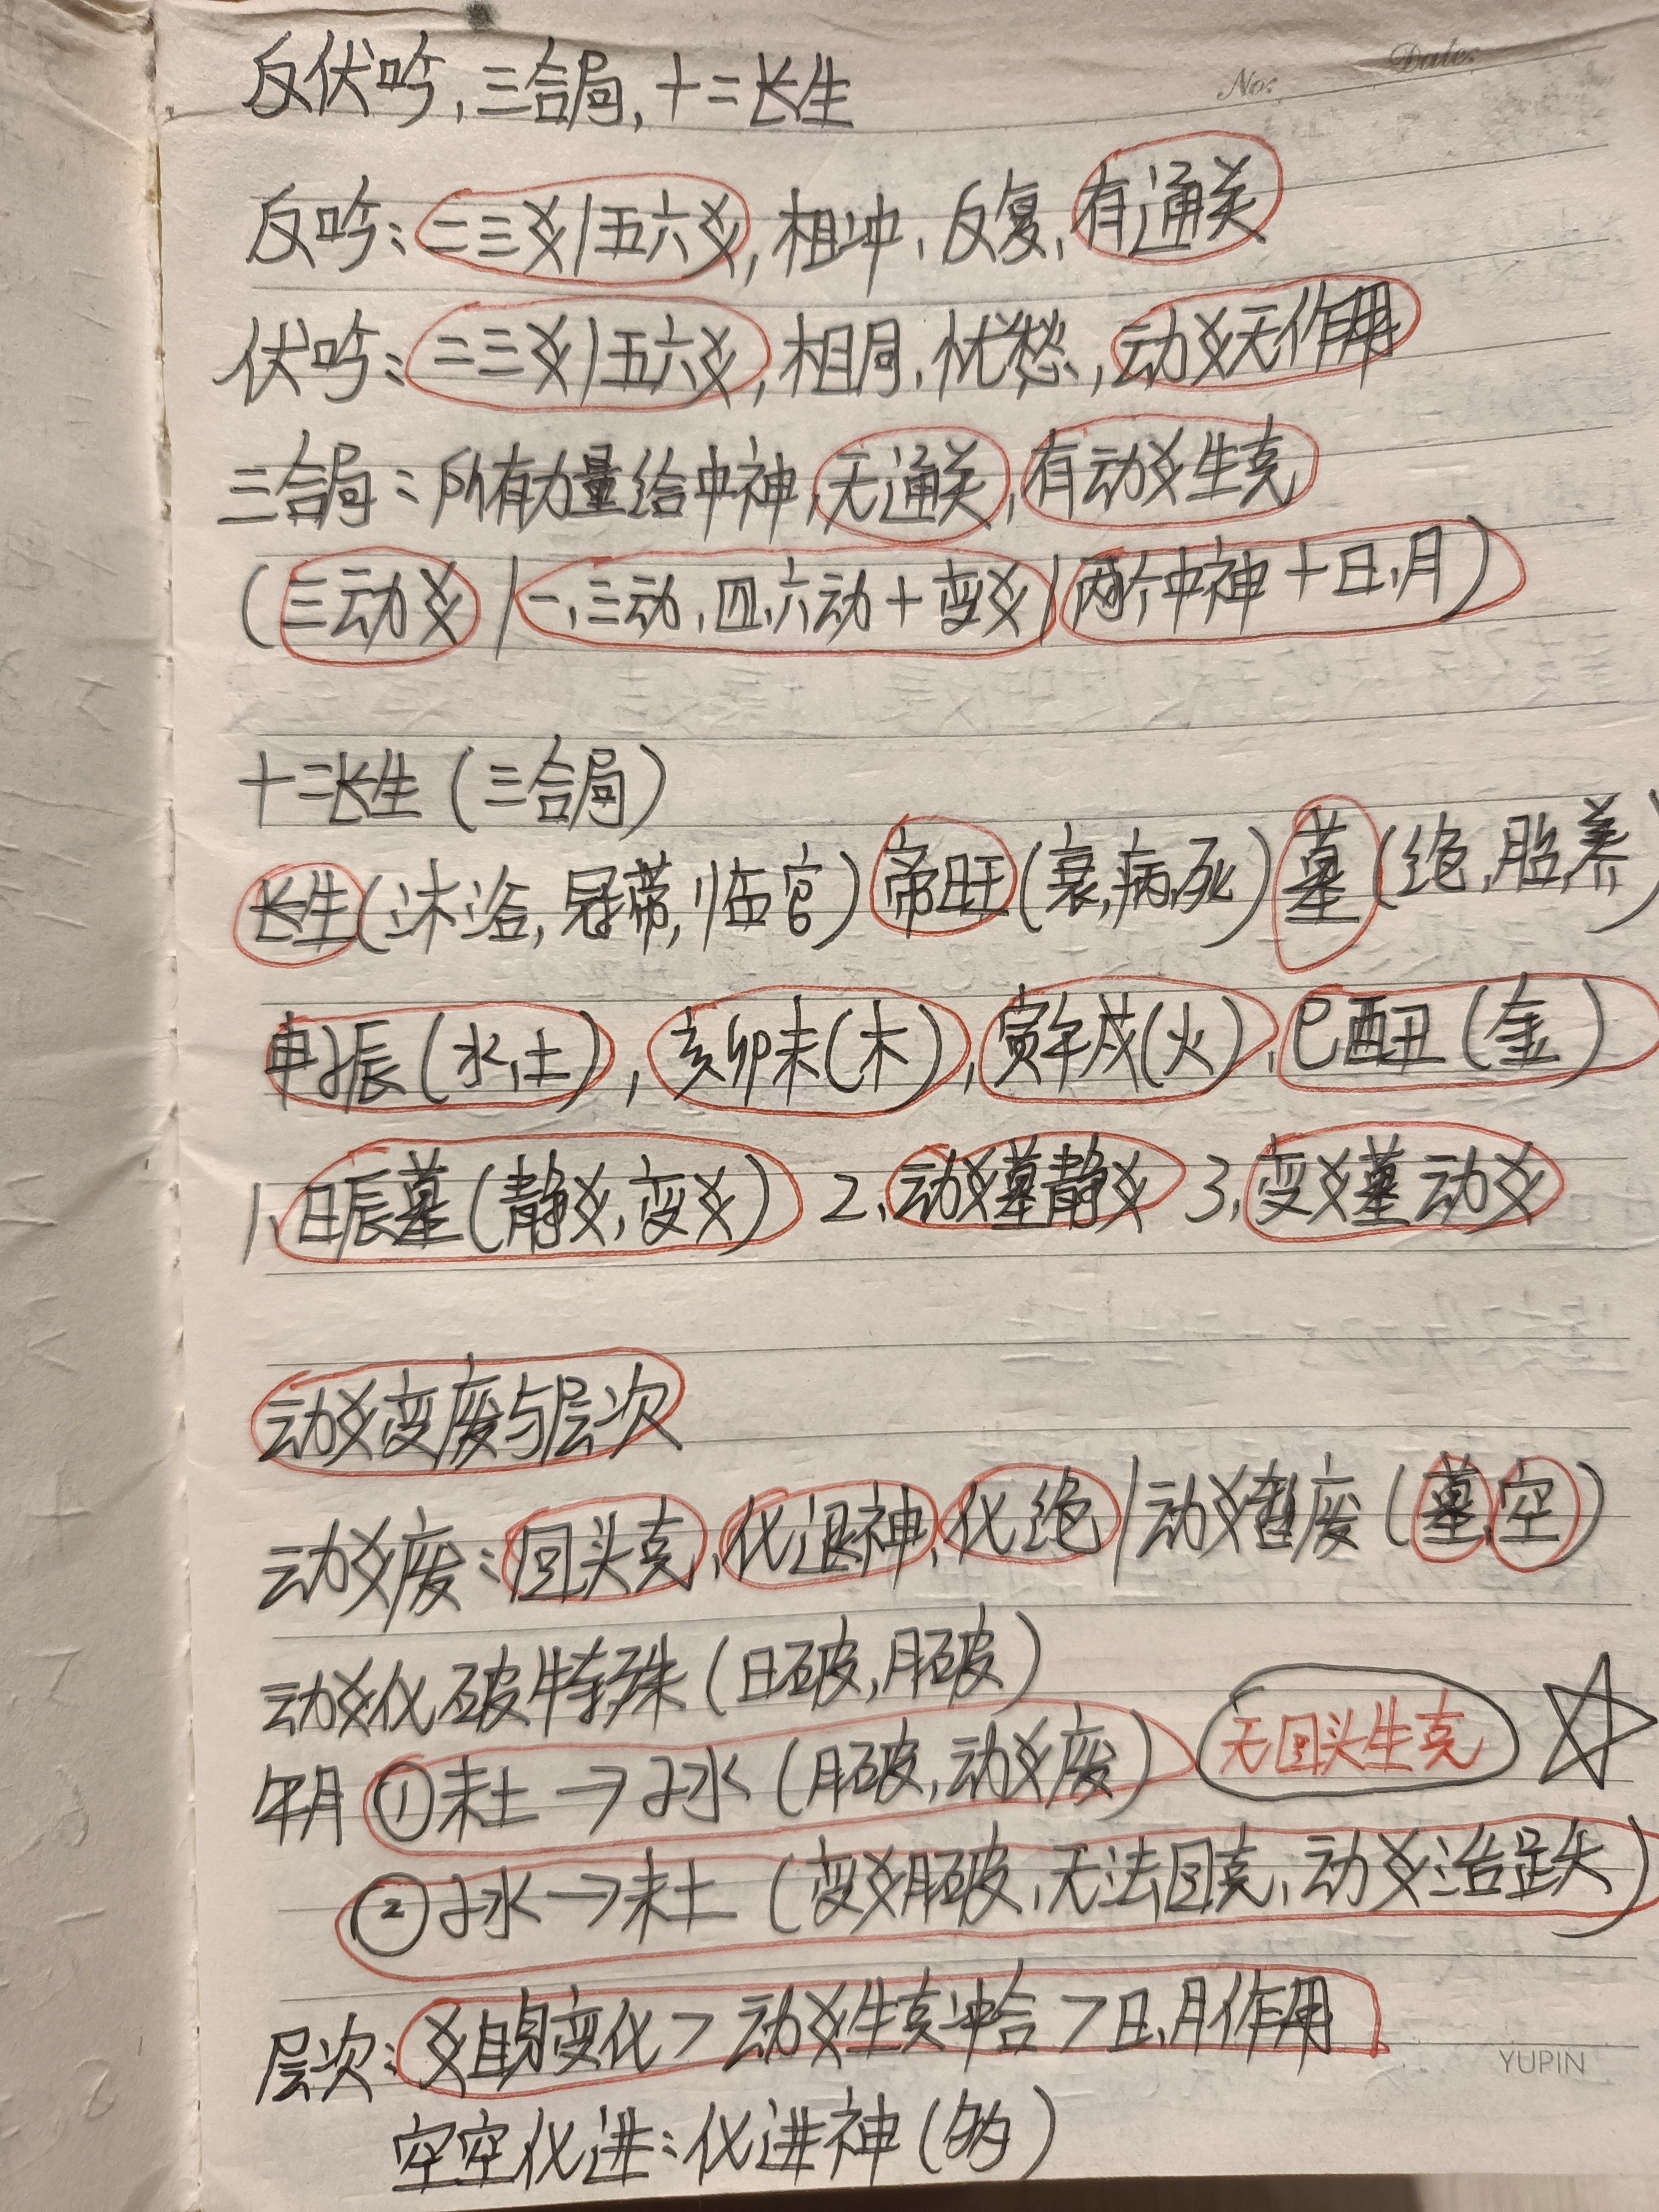 No.
Date.
反伏吟,三合局,十二长生
反吟:二三爻/五六爻,相冲,反复,有通关
伏吟:二三爻/五六爻,相同,忧愁,动爻无作用
三合局:所有力量给中神,无通关,有动爻生克
(三动爻/一,三动,四,六动+变爻/两个中神+日,月)
十二长生(三合局)
长生(沐浴,冠带,临官)帝旺(衰,病,死)墓(绝,胎,养)
申子辰(水,土),亥卯未(木),寅午戌(火),巳酉丑(金)
1,日辰墓(静爻,变爻) 2,动爻墓静爻 3,变爻墓动爻
动爻变废与层次
动爻废:回头克,化退神,化绝/动爻暂废(墓,空)
动爻化破特殊(日破,月破)
午月 ①未土→子水(月破,动爻废) 无回头生克
②子水→未土(变爻月破,无法回克,动爻治跌)
层次:爻自身变化>动爻生克冲合>日,月作用
空空化进:化进神(的)
YUPIN